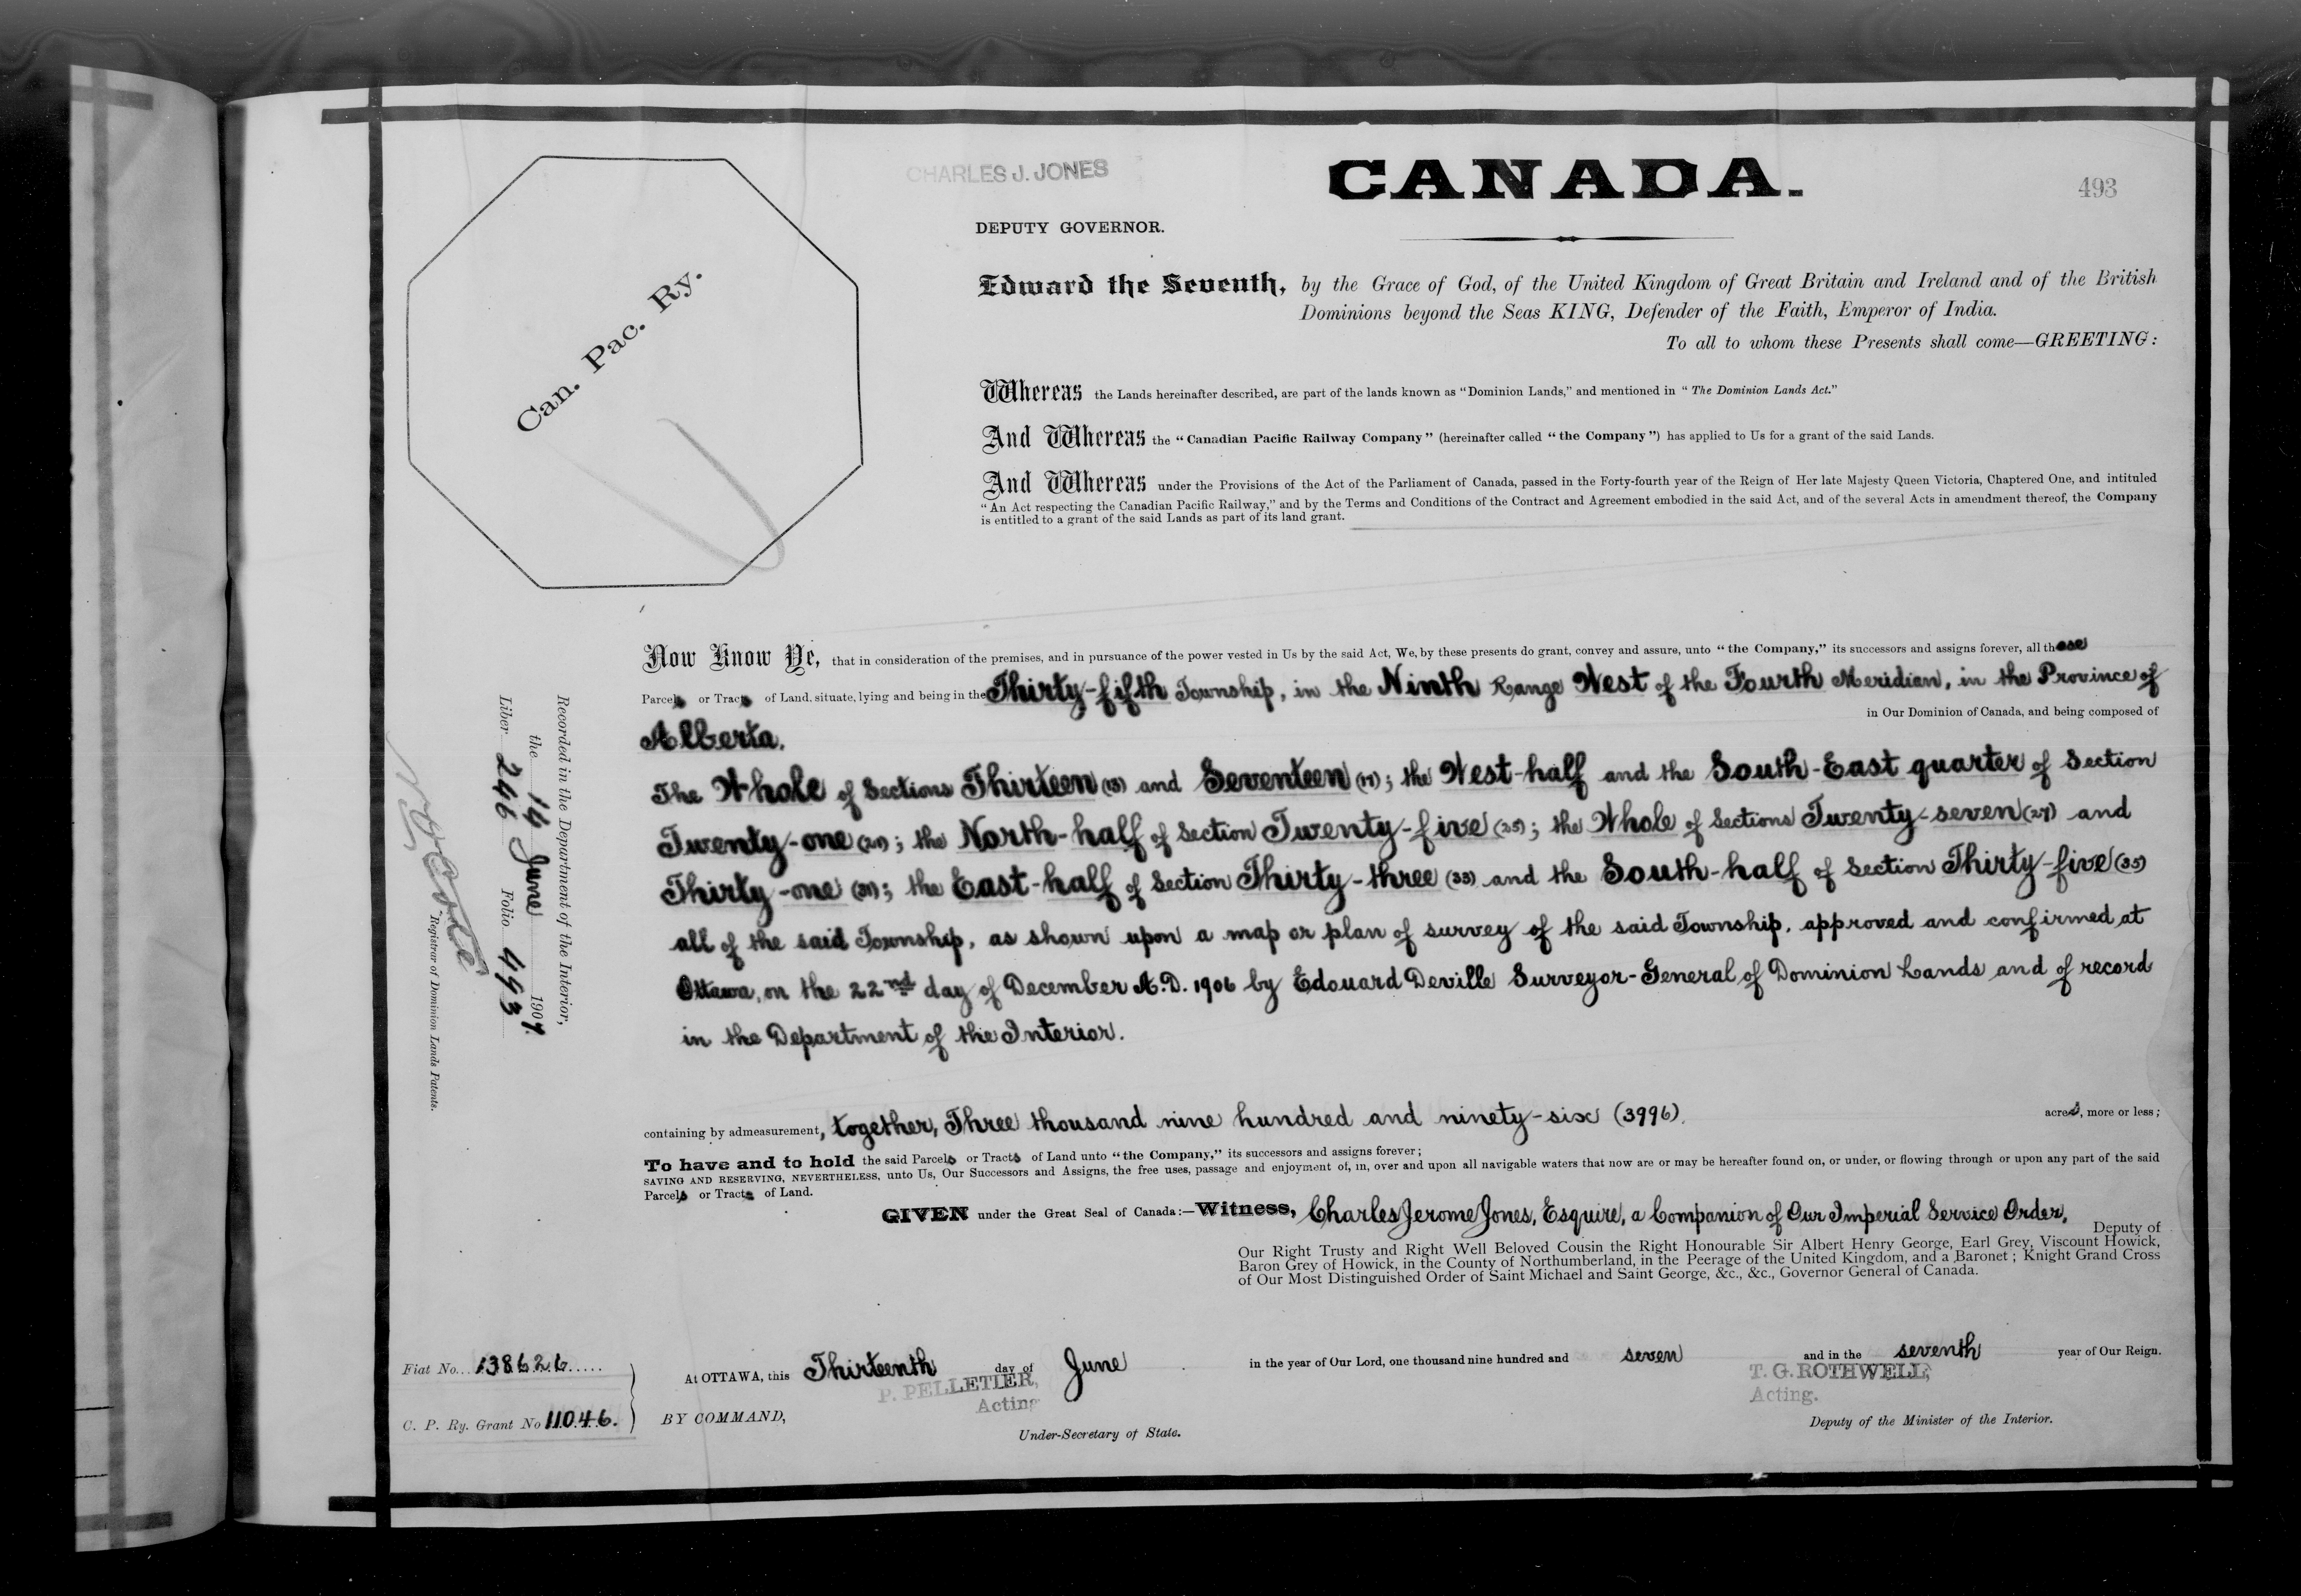 CHARLES J. JONES
CANADA.
493
DEPUTY GOVERNOR.
Can. Pac. Ry.
Edward the Seventh, by the Grace of God, of the United Kingdom of Great Britain and Ireland and of the British
Dominions beyond the Seas KING, Defender of the Faith, Emperor of India.
To all to whom these Presents shall come—GREETING:
Whereas the Lands hereinafter described, are part of the lands known as "Dominion Lands," and mentioned in "The Dominion Lands Act."
And Whereas the "Canadian Pacific Railway Company" (hereinafter called "the Company") has applied to Us for a grant of the said Lands.
And Whereas under the Provisions of the Act of the Parliament of Canada, passed in the Forty-fourth year of the Reign of Her late Majesty Queen Victoria, Chaptered One, and intituled
"An Act respecting the Canadian Pacific Railway," and by the Terms and Conditions of the Contract and Agreement embodied in the said Act, and of the several Acts in amendment thereof, the Company
is entitled to a grant of the said Lands as part of its land grant.
Now Know Ye, that in consideration of the premises, and in pursuance of the power vested in Us by the said Act, We, by these presents do grant, convey and assure, unto "the Company," its successors and assigns forever, all those
Parcels or Tracts of Land, situate, lying and being in the Thirty-fifth Township, in the Ninth Range West of the Fourth Meridian, in the Province of
Alberta. in Our Dominion of Canada, and being composed of
The Whole of Sections Thirteen (13) and Seventeen (17); the West-half and the South-East quarter of Section
Twenty-one (21); the North-half of Section Twenty-five (25); the Whole of Sections Twenty-seven (27) and
Thirty-one (31); the East-half of Section Thirty-three (33) and the South-half of Section Thirty-five (35)
all of the said Township, as shown upon a map or plan of survey of the said Township, approved and confirmed at
Ottawa, on the 22nd day of December A.D. 1906 by Edouard Deville Surveyor-General of Dominion Lands and of record
in the Department of the Interior.
containing by admeasurement, together, Three thousand nine hundred and ninety-six (3996). acres, more or less;
To have and to hold the said Parcels or Tracts of Land unto "the Company," its successors and assigns forever;
SAVING AND RESERVING, NEVERTHELESS, unto Us, Our Successors and Assigns, the free uses, passage and enjoyment of, in, over and upon all navigable waters that now are or may be hereafter found on, or under, or flowing through or upon any part of the said
Parcels or Tracts of Land.
GIVEN under the Great Seal of Canada:—Witness, Charles Jerome Jones, Esquire, a Companion of Our Imperial Service Order,
Deputy of
Our Right Trusty and Right Well Beloved Cousin the Right Honourable Sir Albert Henry George, Earl Grey, Viscount Howick,
Baron Grey of Howick, in the County of Northumberland, in the Peerage of the United Kingdom, and a Baronet; Knight Grand Cross
of Our Most Distinguished Order of Saint Michael and Saint George, &c., &c., Governor General of Canada.
At OTTAWA, this Thirteenth day of June in the year of Our Lord, one thousand nine hundred and seven and in the seventh year of Our Reign.
P. PELLETIER,
Acting
T. G. ROTHWELL,
Acting.
BY COMMAND,
Under-Secretary of State.
Deputy of the Minister of the Interior.
Fiat No... 138626.....
C. P. Ry. Grant No 11046.
Recorded in the Department of the Interior,
the 14 June 1907.
Liber 246 Folio 493
Registrar of Dominion Lands Patents.